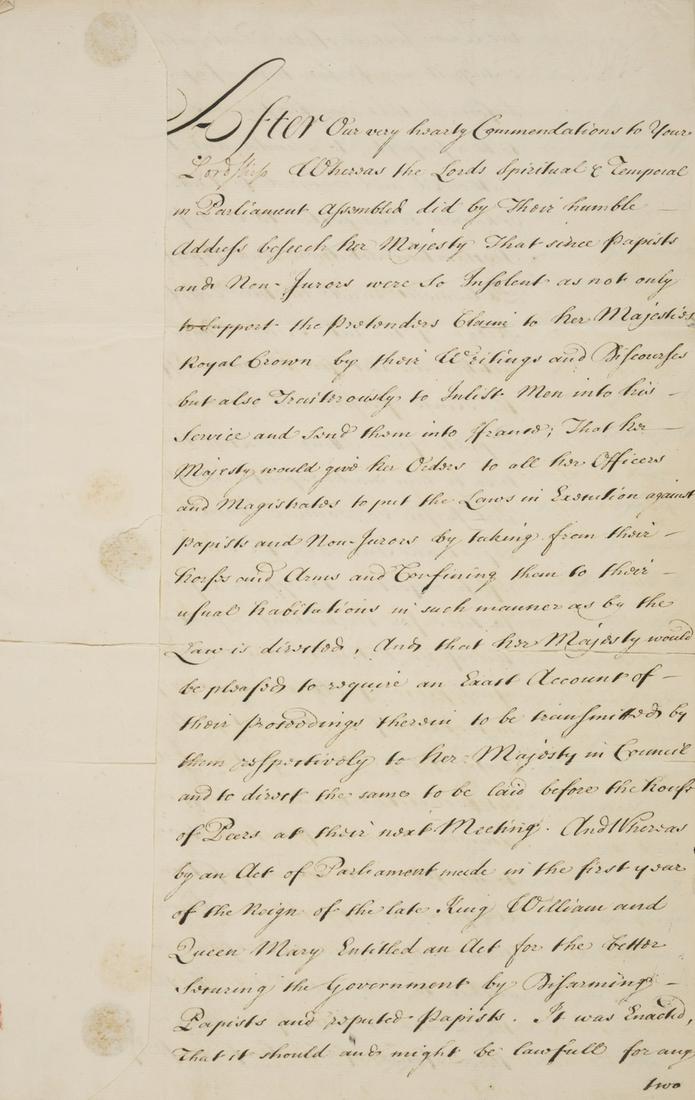 After Our very hearty Commendations to Your
Lordship Whereas the Lords Spiritual & Temporal
in Parliament Assembled did by Their humble —
Address beseech her Majesty That since Papists
and Non-Jurors were So Insolent as not only
to Support the Pretenders Claim to her Majesties
Royal Crown by their Writings and Discourses
but also Traiterously to Inlist Men into his —
Service and Send them into ffrance; That her —
Majesty would give her Orders to all her Officers
and Magistrates to put the Laws in Execution against
Papists and Non-Jurors by taking from their —
horses and Arms and Confining them to their —
usual habitations in such manner as by the
Law is directed, And that her Majesty would
be pleased to require an Exact Account of —
their proceedings therein to be transmitted by
them respectively to her Majesty in Council
and to direct the same to be laid before the house
of Peers at their next Meeting. And Whereas
by an Act of Parliament made in the first year
of the Reign of the late King William and
Queen Mary Entitled an Act for the better
Securing the Government by Disarming —
Papists and reputed Papists. It was Enacted,
That it should and might be lawfull for any
two